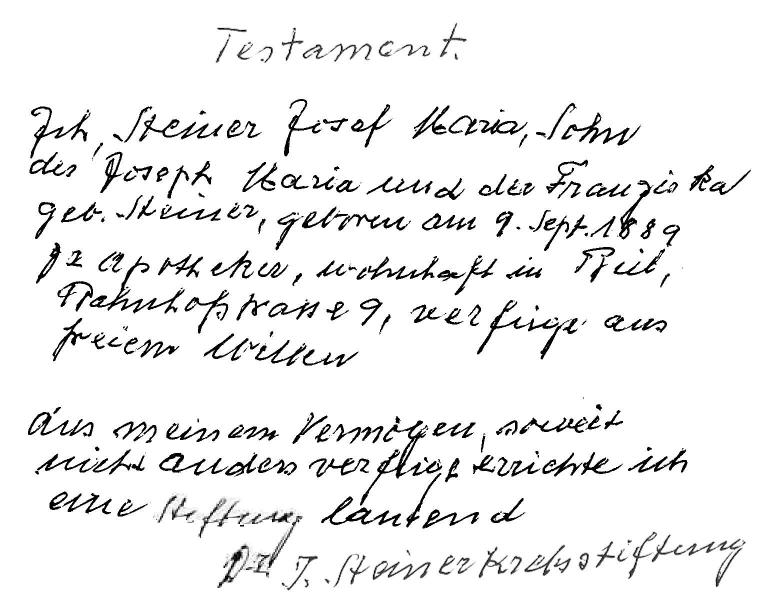 Testament.
Ich, Steiner Josef Maria, Sohn
des Joseph Maria und der Franziska
geb. Steiner, geboren am 9. Sept. 1889
Dr Apotheker, wohnhaft in Biel,
Bahnhofstrasse 9, verfüge aus
freiem Willen
Aus meinem Vermögen, soweit
nicht anders verfügt errichte ich
eine Stiftung lautend
Dr. J. Steiner Krebsstiftung